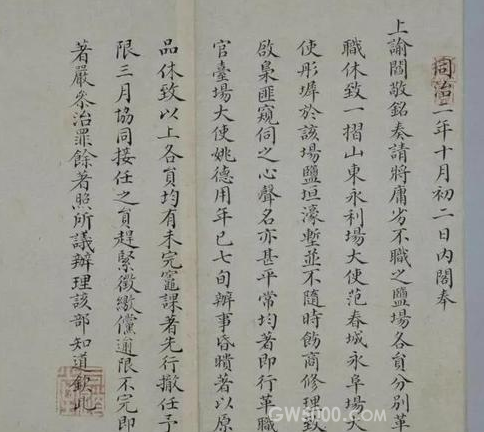 同治二年十月初二日內閣奉
上諭閻敬銘奏請將庸劣不職之鹽場各員分別革
職休致一摺山東永利場大使范春城永阜場大
使彤墀於該場鹽垣濠塹並不隨時飭商修理致
啟梟匪窺伺之心聲名亦甚平常均著即行革職
官臺場大使姚德用年已七旬辦事昏瞶著以原
品休致以上各員均有未完竈課著先行撤任予
限三月協同接任之員趕緊徵繳儻逾限不完即
著嚴參治罪餘著照所議辦理該部知道欽此
GW5000.COM